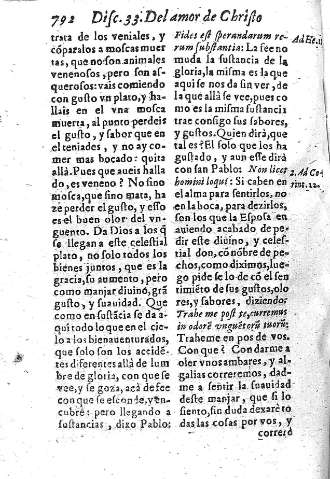 792 Disc. 33. Del amor de Christo
trata de los veniales, y
cóparalos a moscas muer
tas, que no son animales
venenosos, pero son as-
querosos: vais comiendo
con gusto vn plato, y ha-
llais en el vna mosca
muerta, al punto perdeis
el gusto, y sabor que en
el teniades, y no ay co-
mer mas bocado: quita
allà. Pues que aueis halla
do, es veneno? No sino
mosca, que sino mata, ha
ze perder el gusto, y esso
es el buen olor del vn-
guento. Da Dios a los q̃
se llegan a este celestial
plato, no solo todos los
bienes juntos, que es la
gracia, su aumento, pero
como manjar diuino, grã
gusto, y suauidad. Que
como en sustãcia se da a-
qui todo lo que en el cie-
lo a los bienauenturados,
que solo son los accidẽ
tes diferentes allà de lum
bre de gloria, con que se
vee, y se goza, acà de fee
con que se esconde, y en-
cubre: pero llegando a
sustancias, dixo Pablo:
Fides est sperandarum re-
rum substantia: La fee no
muda la sustancia de la
gloria, la misma es la que
aqui se nos da sin ver, de
la que allà se vee, pues co
mo es la misma sustancia
trae consigo sus sabores,
y gustos. Quien dirà, que
tal es? El solo que los ha
gustado, y aun esse dirà
con san Pablo: Non licet
homini loqui: Si caben en
el alma para sentirlos, no
en la boca, para dezirlos,
son los que la Esposa en
auiendo acabado de pe-
dir este diuino, y celes-
tial don, cõ nõbre de pe-
chos, como diximos, lue-
go pide se lo de cõ el sen
timiẽto de sus gustos, olo
res, y sabores, diziendo:
Trahe me post te, curremus
in odorẽ vnguẽtorũ tuorũ:
Traheme en pos de vos.
Con que? Con darme a
oler vnos ambares, y al-
galias correremos, dad-
me a sentir la suauidad
deste manjar, que si lo
siento, sin duda dexarè to
das las cosas por vos, y
correrè
Ad He. 11
2. Ad Co-
rint. 12.